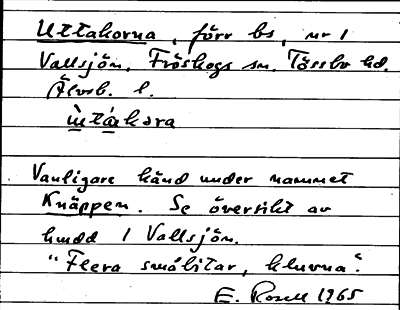 Uttakorna, förr bs, nr 1
Vallsjön, Fröskogs sn. Tössbo hd.
Älvsb. l.
ùtákora
Vanligare känd under namnet
Knäppen. Se översikt av
hmdd 1 Vallsjön.
"Flera småbitar, kluvna".
E. Rosell 1965